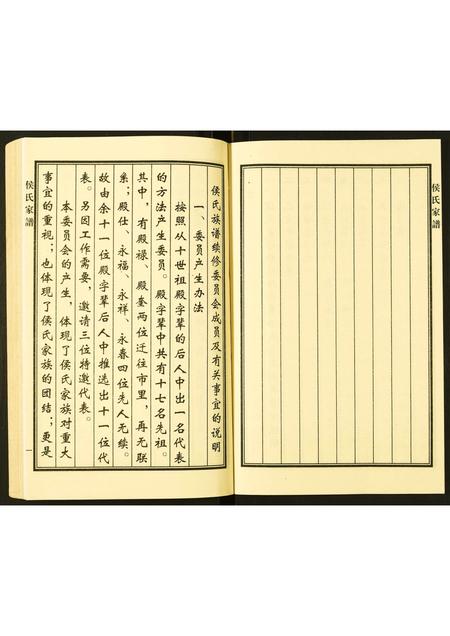 侯氏家譜
侯氏族谱续修委员会成员及有关事宜的说明
一、委员产生办法
按照从十世祖殿字辈的后人中出一名代表
的方法产生委员。殿字辈中共有十七名先祖。
其中，有殿禄、殿奎两位迁往市里，再无联
系；殿仕、永福、永祥、永春四位先人无续。
故由余十一位殿字辈后人中推选出十一位代
表。另因工作需要，邀请三位特邀代表。
本委员会的产生，体现了侯氏家族对重大
事宜的重视；也体现了侯氏家族的团结；更是
侯氏家譜
一